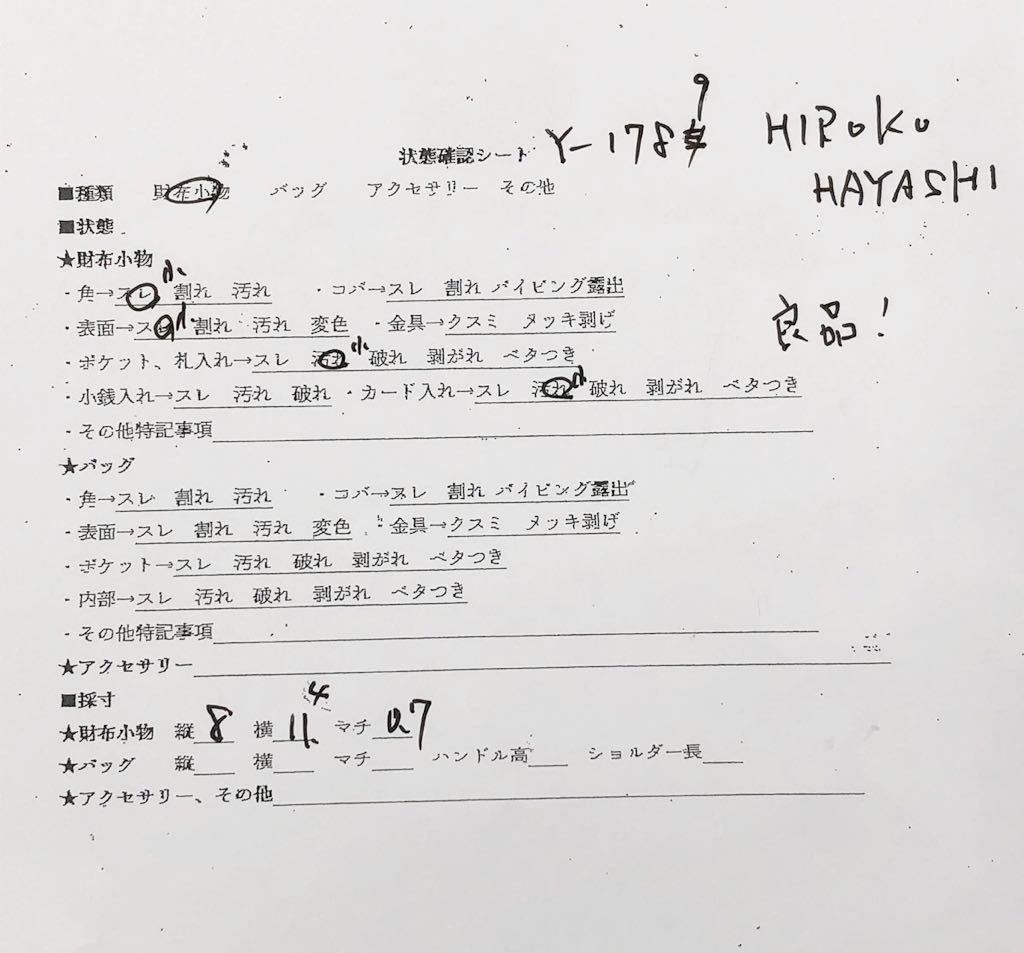 9
状態確認シート Y-178 HIROKO
HAYASHI
■種類 財布小物 バッグ アクセサリー その他
■状態
★財布小物
・角→スレ 小 割れ 汚れ ・コバ→スレ 割れ パイピング露出
良品!
・表面→スレ 小 割れ 汚れ 変色 ・金具→クスミ メッキ剥げ
・ポケット、札入れ→スレ 汚れ 小 破れ 剥がれ ベタつき
・小銭入れ→スレ 汚れ 破れ ・カード入れ→スレ 汚れ 小 破れ 剥がれ ベタつき
・その他特記事項
★バッグ
・角→スレ 割れ 汚れ ・コバ→スレ 割れ パイピング露出
・表面→スレ 割れ 汚れ 変色 ・金具→クスミ メッキ剥げ
・ポケット→スレ 汚れ 破れ 剥がれ ベタつき
・内部→スレ 汚れ 破れ 剥がれ ベタつき
・その他特記事項
★アクセサリー
■採寸
★財布小物 縦 8 横 11.4 マチ 0.7
★バッグ 縦 横 マチ ハンドル高 ショルダー長
★アクセサリー、その他